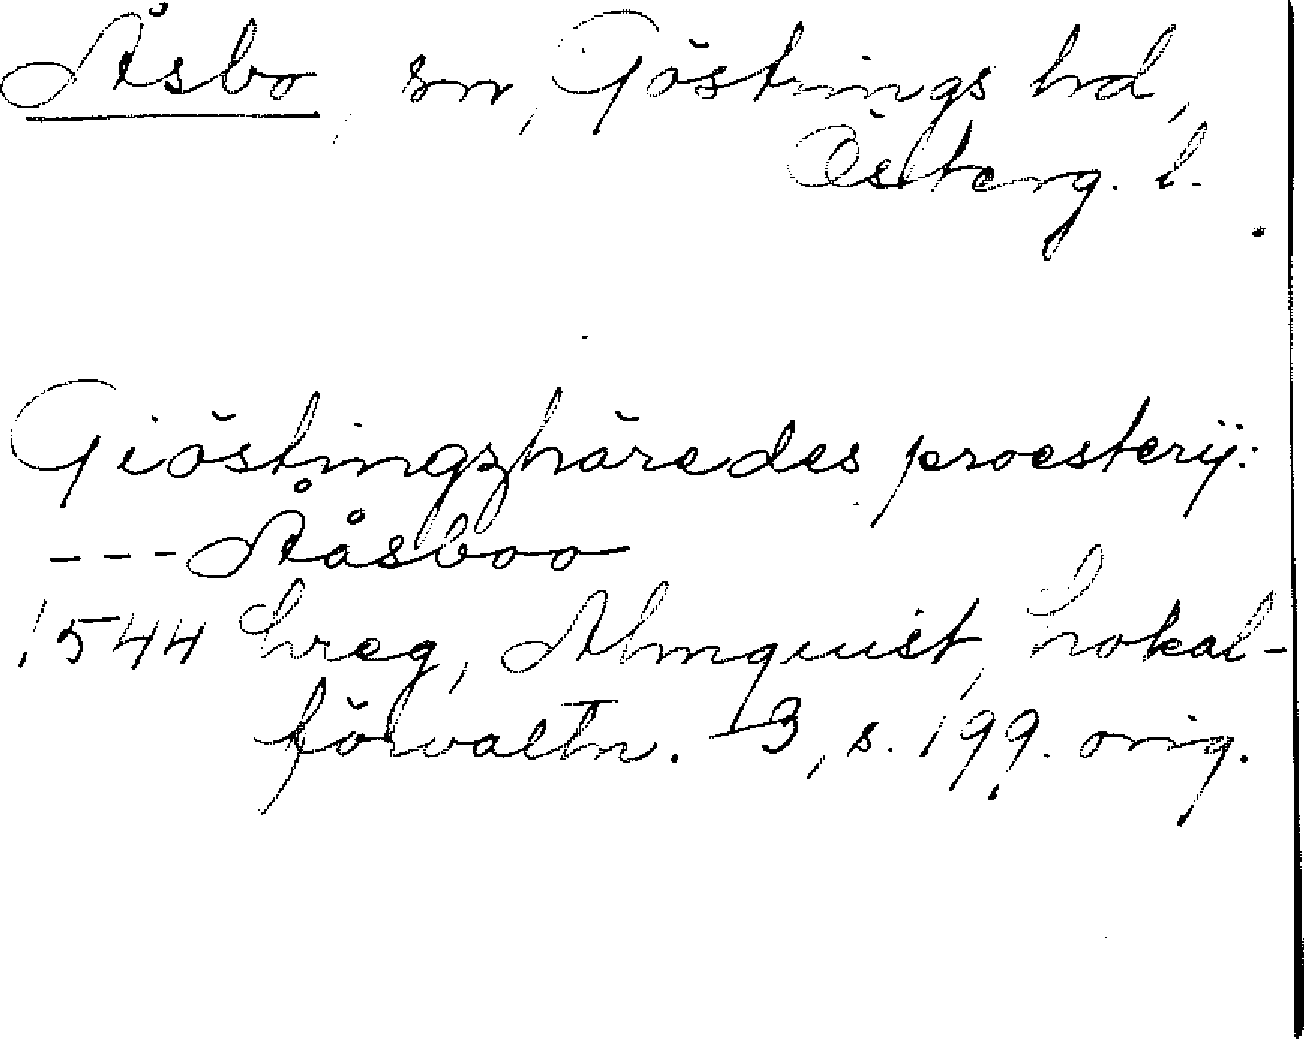 Åsbo, sn, Göstrings hd,
Österg. l.
Giöstingzhäredes proesterij:
--- Ååsboo
1544 Lreg, Almquist, Lokal-
förvaltn. I3, s. 199. orig.